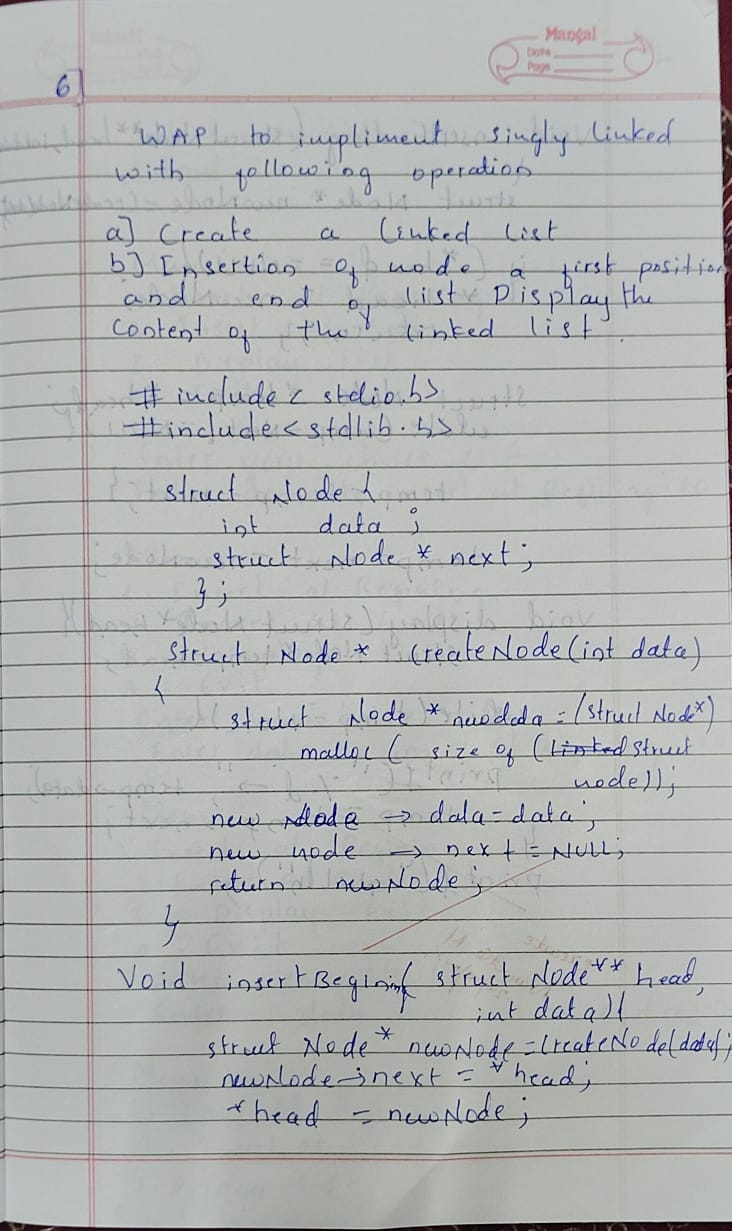 Mangal
Date
Page
6]
WAP to impliment singly linked
with following operation
a] Create a linked list
b] Insertion of node a first position
and end of list Display the
content of the linked list.
# include < stdio.h>
#include<stdlib.h>
struct Node {
int data ;
struct Node * next;
};
struct Node * CreateNode(int data)
{
struct Node * = (struct Node*)
malloc ( size of (linked struct
node));
new Node -> data = data;
new node -> next = NULL;
return newNode;
}
Void struct Node** head,
int data){
struct Node * newNode = CreateNode(data);
newNode->next = *head;
*head = newNode;